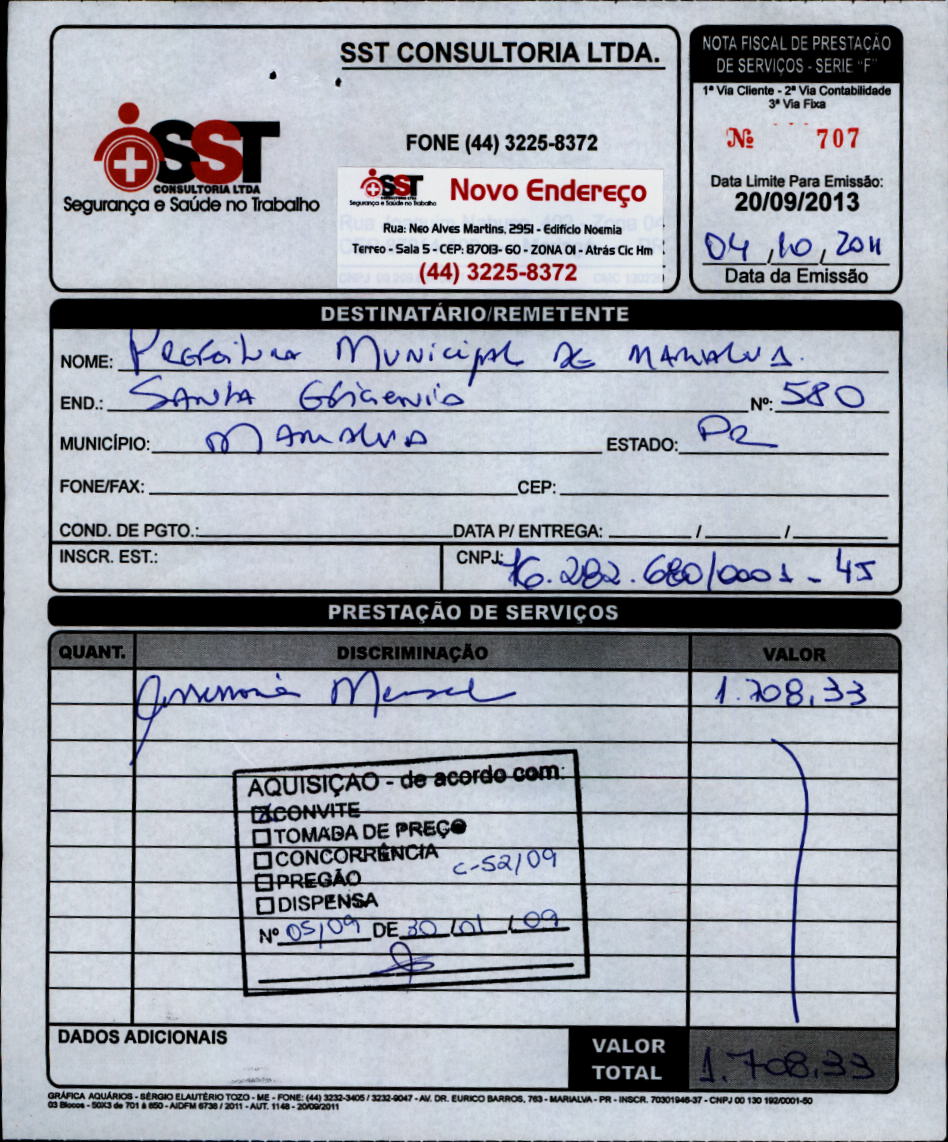 SST CONSULTORIA LTDA.
SST
CONSULTORIA LTDA
Segurança e Saúde no Trabalho
FONE (44) 3225-8372
SST
Novo Endereço
Rua: Neo Alves Martins, 2951 - Edifício Noemia
Terreo - Sala 5 - CEP: 87013- 60 - ZONA 01 - Atrás Cic Hm
(44) 3225-8372
NOTA FISCAL DE PRESTAÇÃO
DE SERVIÇOS - SERIE "F"
1ª Via Cliente - 2ª Via Contabilidade
3ª Via Fixa
Nº 707
Data Limite Para Emissão:
20/09/2013
04,10,2011
Data da Emissão
DESTINATÁRIO/REMETENTE
NOME: Prefeitura Municipal de Marialva.
END.: Santa Efigenia Nº: 580
MUNICÍPIO: Marialva ESTADO: PR
FONE/FAX: CEP:
COND. DE PGTO.: DATA P/ ENTREGA: / /
INSCR. EST.: CNPJ: 76.282.680/0001-45
PRESTAÇÃO DE SERVIÇOS
QUANT. DISCRIMINAÇÃO VALOR
Assessoria Mensal 1.708,33
AQUISIÇAO - de acordo com:
CONVITE
TOMADA DE PREÇO
CONCORRÊNCIA
C-52/09
PREGÃO
DISPENSA
Nº 05/09 DE 30/01/09
DADOS ADICIONAIS
VALOR
TOTAL
1.708,33
GRÁFICA AQUÁRIOS - SÉRGIO ELAUTÉRIO TOZO - ME - FONE: (44) 3232-3405 / 3232-9047 - AV. DR. EURICO BARROS, 763 - MARIALVA - PR - INSCR. 70301946-37 - CNPJ 00 130 192/0001-50
03 Blocos - 50X3 de 701 à 850 - AIDFM 6736 / 2011 - AUT. 1148 - 20/09/2011